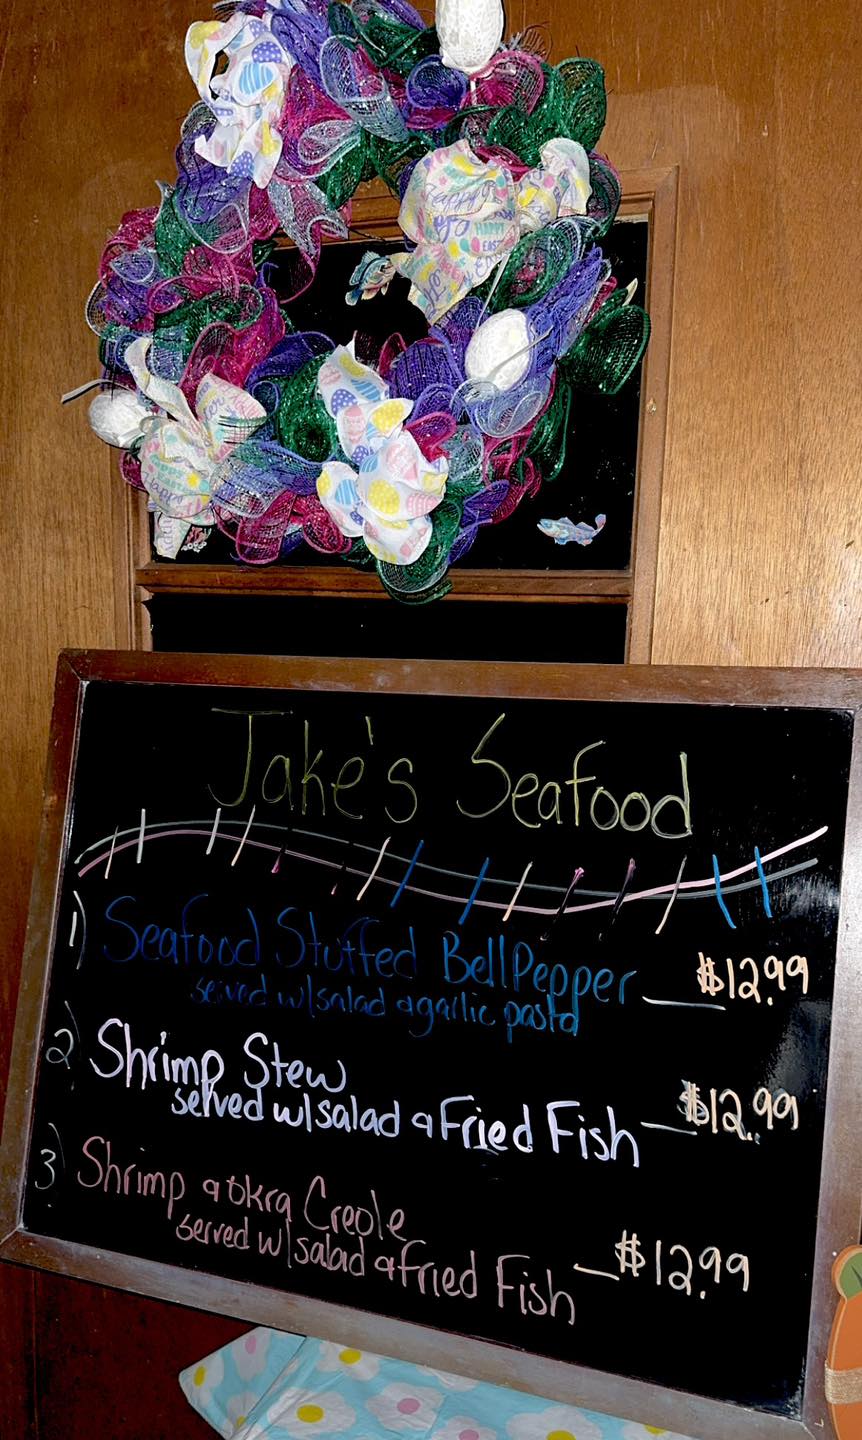 Happy
HAPPY
EASTER
Jake's Seafood
1) Seafood Stuffed BellPepper — $12.99
served w/salad & garlic pasta
2) Shrimp Stew
served w/salad & Fried Fish — $12.99
3) Shrimp & Okra Creole
served w/salad & Fried Fish — $12.99